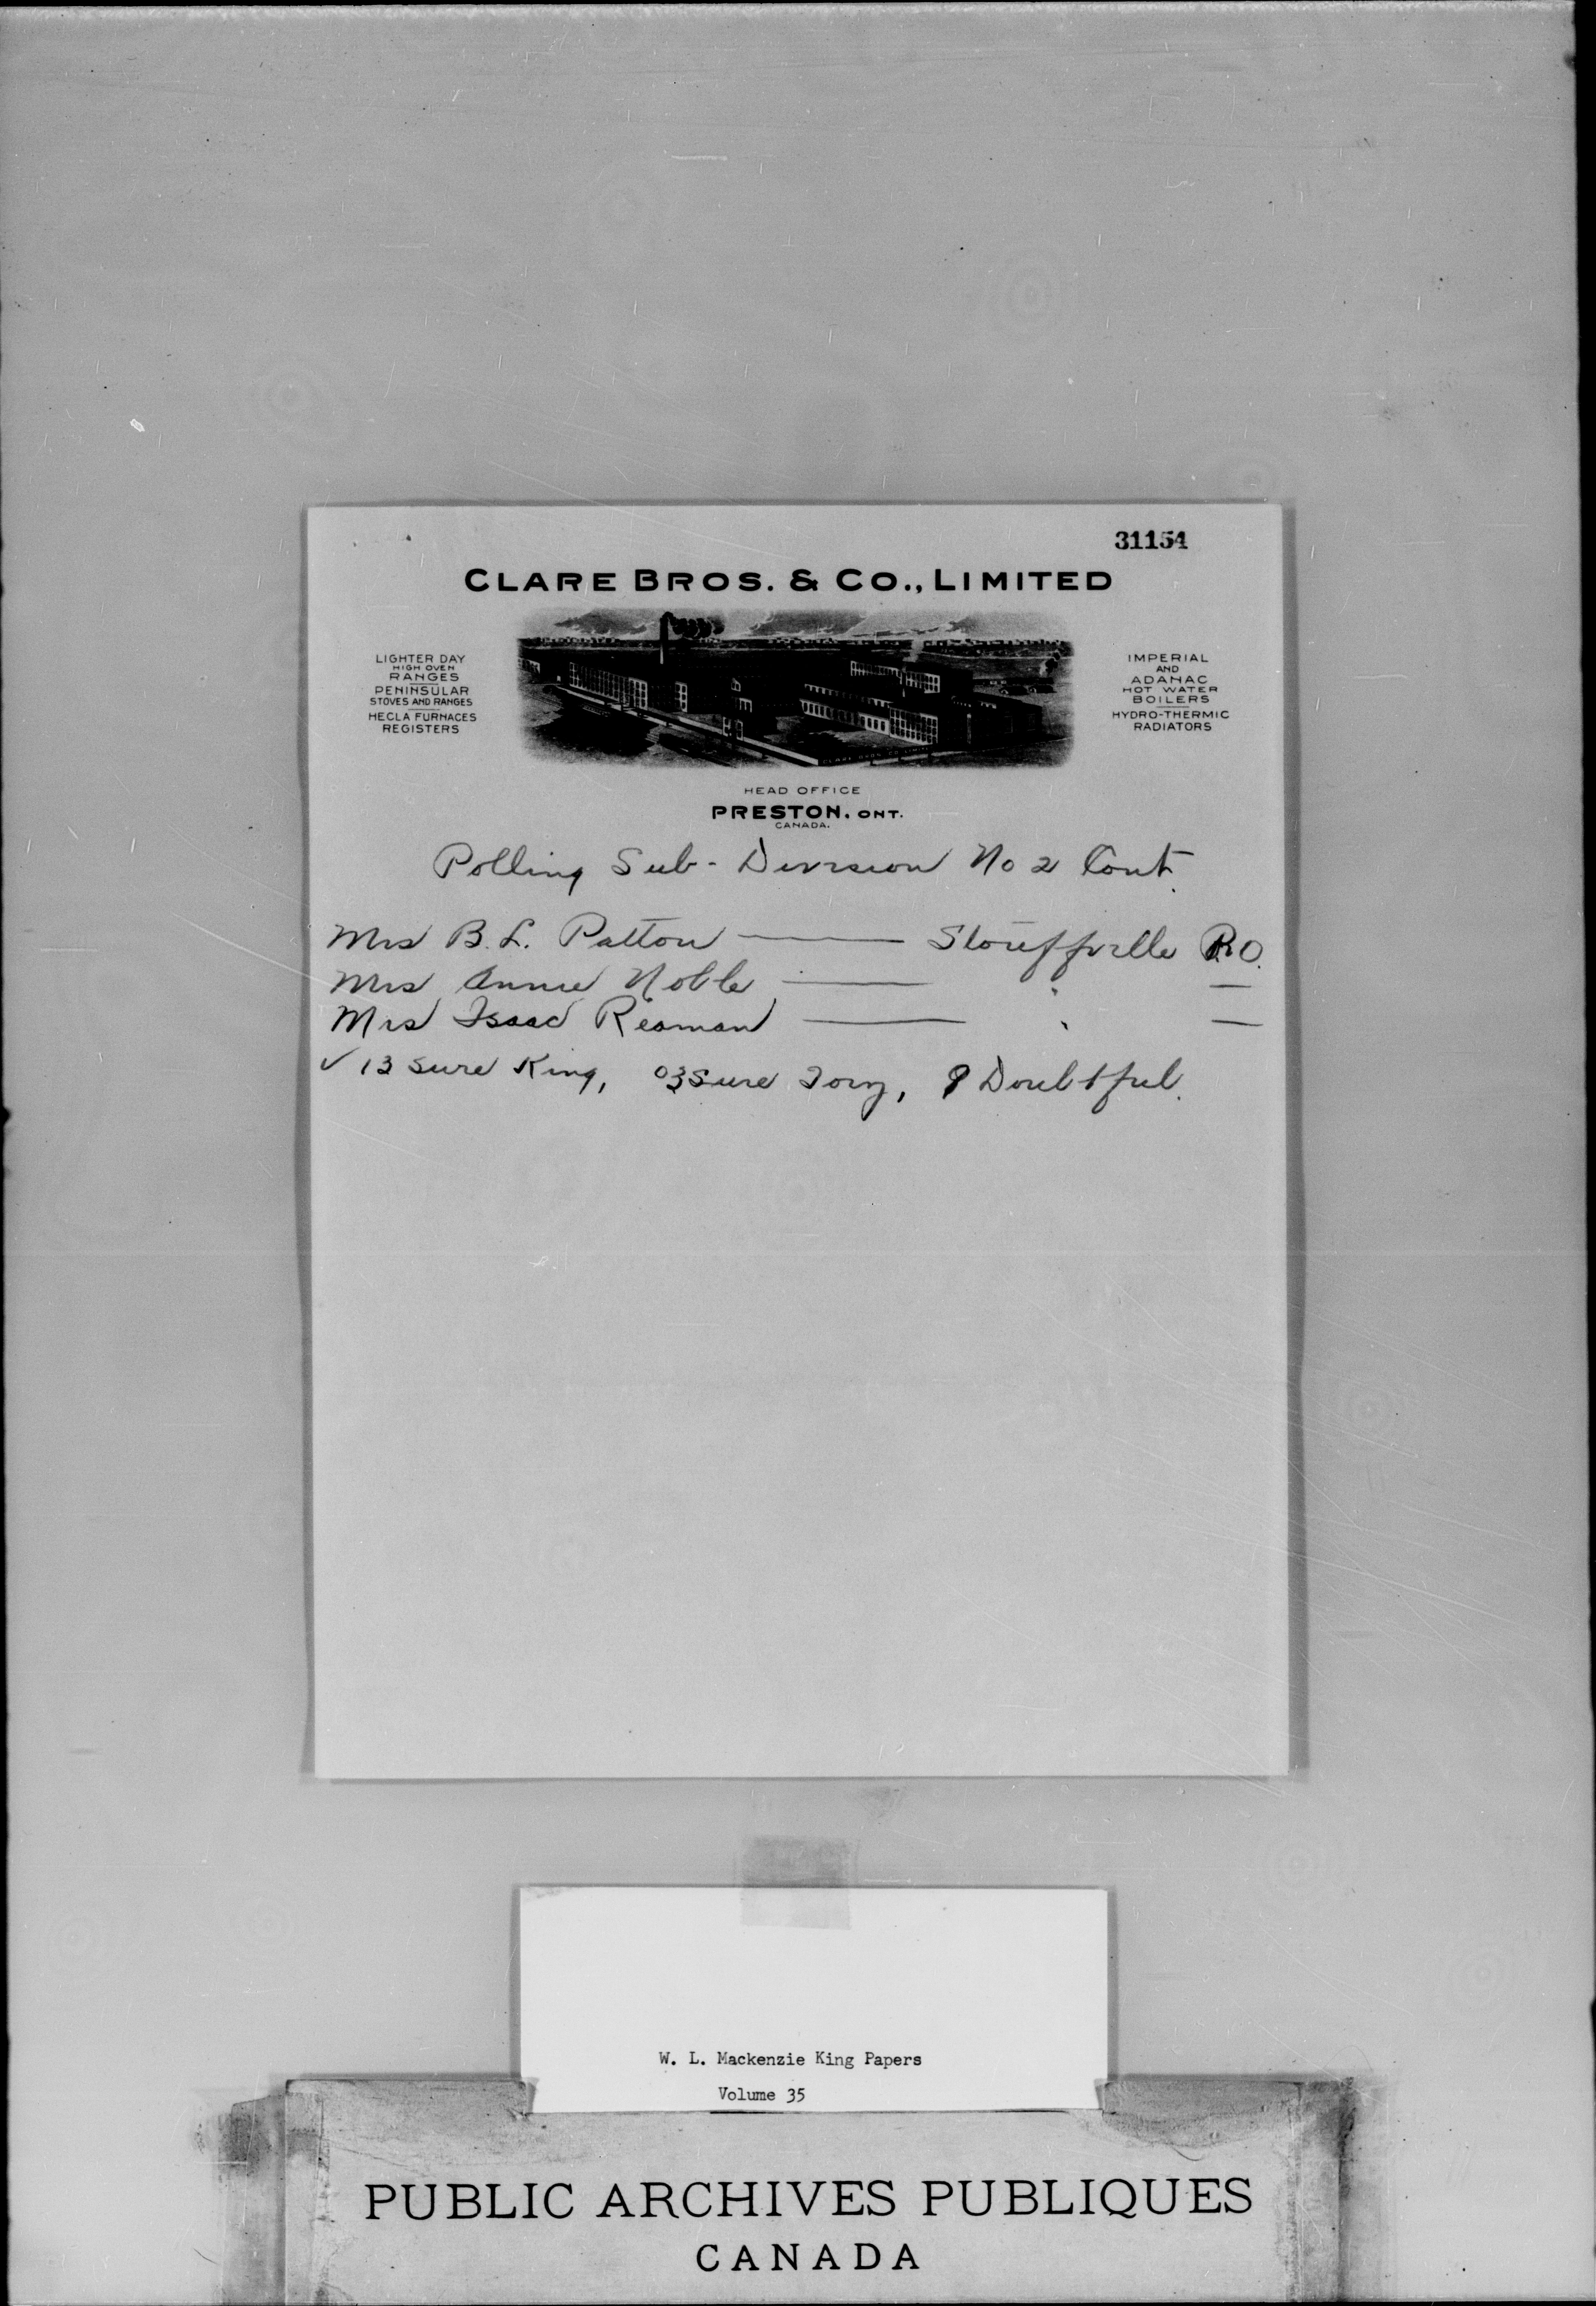 31154
CLARE BROS. & CO., LIMITED
LIGHTER DAY
HIGH OVEN
RANGES
PENINSULAR
STOVES AND RANGES
HECLA FURNACES
REGISTERS
IMPERIAL
AND
ADANAC
HOT WATER
BOILERS
HYDRO-THERMIC
RADIATORS
HEAD OFFICE
PRESTON, ONT.
CANADA.
Polling Sub-Division No 2 Cont.
Mrs B. L. Patton — Stouffville
Mrs Annie Noble — " —
Mrs Isaac Reaman — " —
✓ 13 Sure King, 03 Sure Tory, 9 Doubtful.
W. L. Mackenzie King Papers
Volume 35
PUBLIC ARCHIVES PUBLIQUES
CANADA